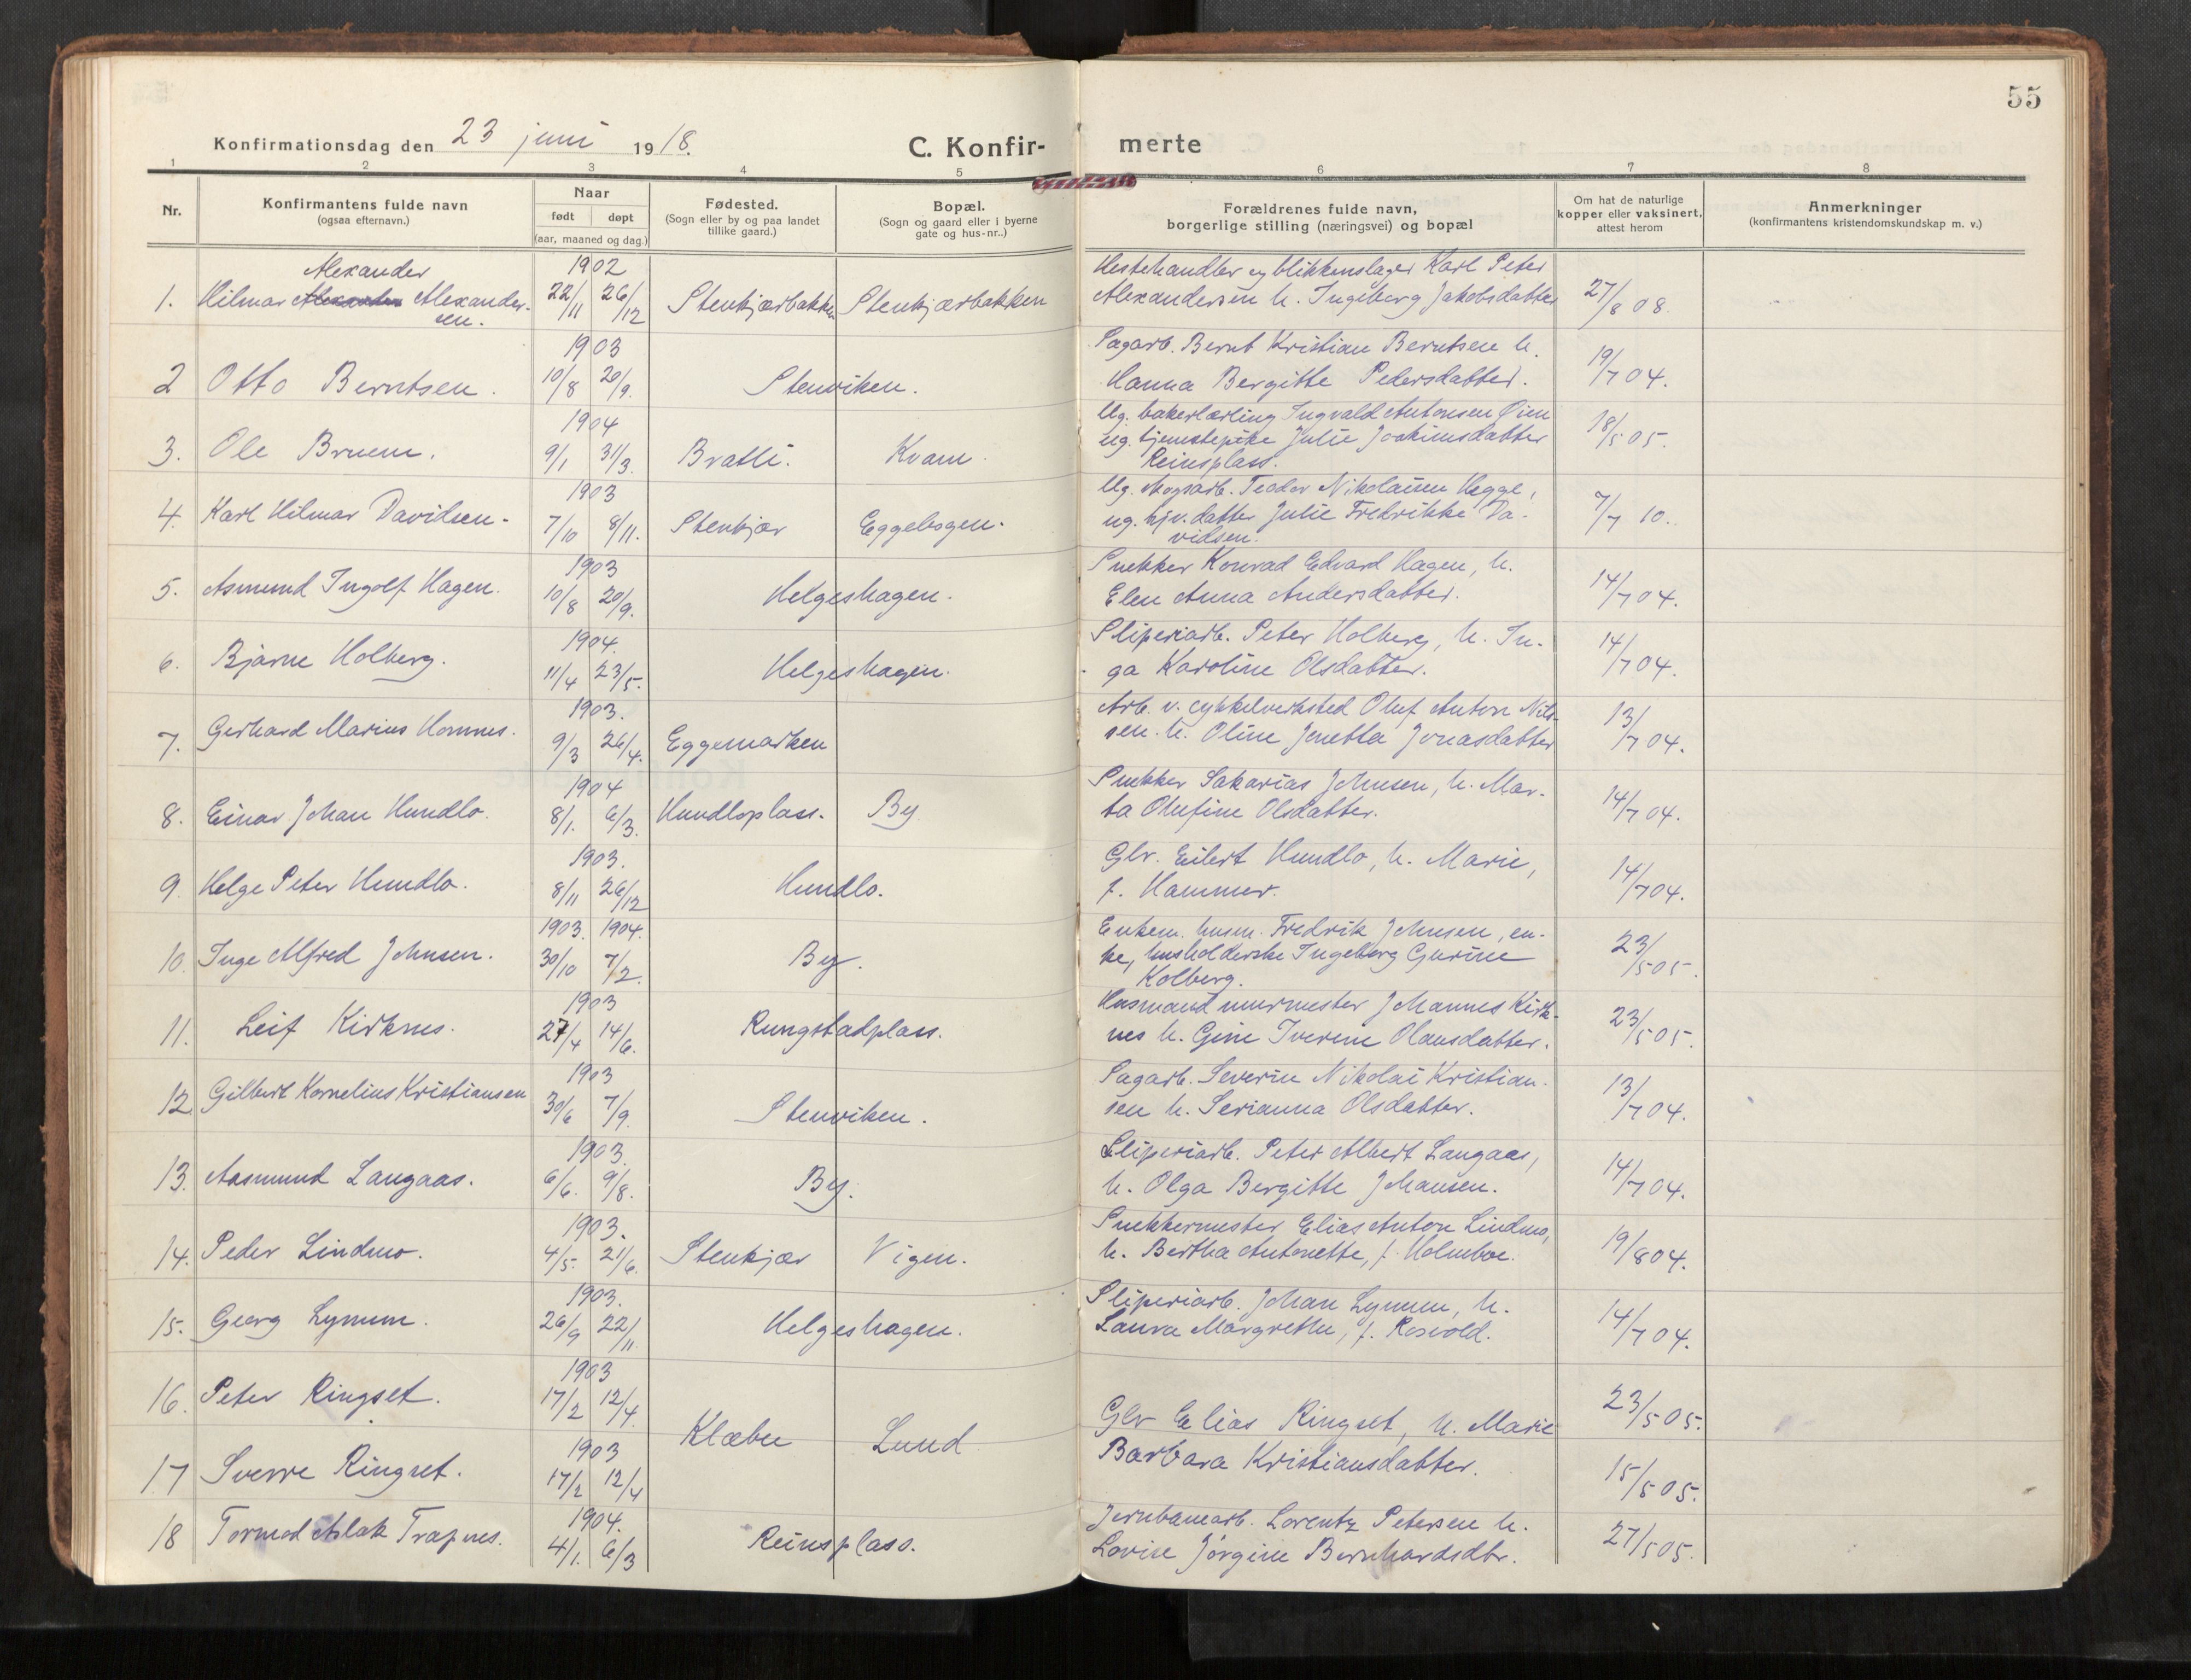 55
Konfirmationsdag den 23 juni 1918.
C. Konfir-
merte
1 2 3 4 5 6 7 8
Nr.
Konfirmantens fulde navn
(ogsaa efternavn.)
Naar
født døpt
(aar, maaned og dag.)
Fødested.
(Sogn eller by og paa landet
tillike gaard.)
Bopæl.
(Sogn og gaard eller i byerne
gate og hus-nr..)
Forældrenes fulde navn,
borgerlige stilling (næringsvei) og bopæl
Om hat de naturlige
kopper eller vaksinert,
attest herom
Anmerkninger
(konfirmantens kristendomskundskap m. v.)
Alexander 1902 Hestehandler og blikkenslager Karl Peter
1. Hilmar Alexander- 22/11 26/12 Stenkjærbakken Stenkjærbakken Alexandersen h. Ingeborg Jakobsdatter 27/8 08.
sen.
1903 Sagarb. Bernt Kristian Berntsen h.
2 Otto Berntsen. 10/8 20/9. Stenviken. Hanna Bergitte Pedersdatter. 19/7 04.
1904 Ug. bakerlærling Ingvald Antonsen Øien
3. Ole Bruem. 9/1 31/3. Bratli. Kvam. ug. tjenstepike Julie Joakimsdatter 18/5 05.
Reinsplass.
1903 Ug. skogsarb. Teodor Nikolaisen Hegge,
4. Karl Hilmar Davidsen. 7/10 8/11. Stenkjær Eggebogen. ug. hjv. datter Julie Fredrikke Da- 7/7 10.
vidsen.
1903 Snekker Konrad Edvard Hagen, h.
5. Asmund Ingolf Hagen. 10/8 20/9. Helgeshagen. Elen Anna Andersdatter. 14/7 04.
1904. Sliperiarb. Peter Holberg, h. In-
6. Bjarne Holberg. 11/4 23/5. Helgeshagen. ga Karoline Olsdatter. 14/7 04.
1903. Arb. v. cykkelverksted Oluf Anton Nils-
7. Gerhard Marius Homnes. 9/3 26/4. Eggemarken sen. h. Oline Jenetta Jonasdatter 13/7 04.
1904 Snekker Sakarias Johnsen, h. Mar-
8. Einar Johan Hundlo. 8/1. 6/3. Hundloplass. By. ta Olufine Olsdatter. 14/7 04.
1903. Glv. Eilert Hundlo, h. Marie,
9. Helge Peter Hundlo. 8/11 26/12 Hundlo. f. Hammer. 14/7 04.
1903. 1904. Enkem. husm. Fredrik Johnsen, en-
10. Inge Alfred Johnsen. 30/10 7/2. By. ke, husholderske Ingeborg Gurine 23/5 05.
Kolberg.
1903 Husmand murmester Johannes Kirk-
11. Leif Kirknes. 27/4 14/6. Rungstadplass. nes h. Gine Iverine Olausdatter. 23/5 05.
1903 Sagarb. Severin Nikolai Kristian-
12. Gilbert Kornelius Kristiansen 30/6 7/9. Stenviken. sen h. Serianna Olsdatter. 13/7 04.
1903. Sliperiarb. Peter Albert Langaas,
13. Aasmund Langaas. 6/6. 9/8. By. h. Olga Bergitte Johansen. 14/7 04.
1903. Snekkermester Elias Anton Lindmo,
14. Peder Lindmo. 4/5. 21/6. Stenkjær Vigen. h. Bertha Antonette, f. Holmboe. 19/8 04.
1903. Sliperiarb. Johan Lynum, h.
15. Georg Lynum. 26/9 22/11. Helgeshagen. Laura Margrethe, f. Rosvold. 14/7 04.
1903
16. Peter Ringset. 17/2 12/4. Klæbu Lund Glv Elias Ringset, h. Marie 23/5 05.
1903 Barbara Kristiansdatter.
17 Sverre Ringset. 17/2 12/4 15/5 05.
1904. Jernbanearb. Lorentz Petersen h.
18 Tormod Aslak Trapnes. 4/1. 6/3 Reinsplass. Lovise Jørgine Bernhardsdtr. 27/5 05.